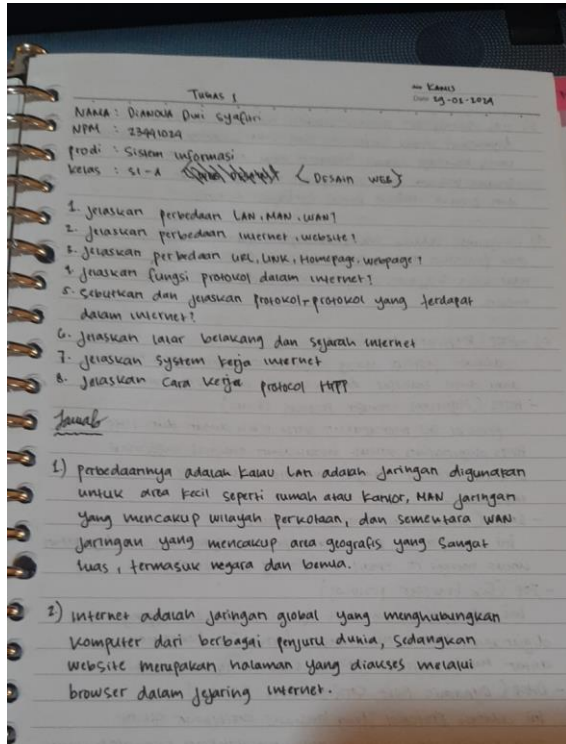 TUGAS 1
No KAMIS
Date 29-01-2024
NAMA : DIANOVA Dwi Syafitri
NPM : 23441024
prodi : Sistem informasi
kelas : SI-A { DESAIN WEB }
1. jelaskan perbedaan LAN, MAN, WAN?
2. jelaskan perbedaan internet, website?
3. jelaskan perbedaan URL, LINK, Homepage, webpage?
4. jelaskan fungsi protokol dalam internet?
5. Sebutkan dan jelaskan protokol-protokol yang terdapat
dalam internet?
6. jelaskan latar belakang dan sejarah internet
7. jelaskan system kerja internet
8. jelaskan cara kerja protocol HTTP
Jawab
1) perbedaannya adalah kalau LAN adalah jaringan digunakan
untuk area kecil seperti rumah atau kantor, MAN jaringan
yang mencakup wilayah perkotaan, dan sementara WAN
jaringan yang mencakup area geografis yang sangat
luas, termasuk negara dan benua.
2) internet adalah jaringan global yang menghubungkan
komputer dari berbagai penjuru dunia, sedangkan
website merupakan halaman yang diakses melalui
browser dalam jejaring internet.